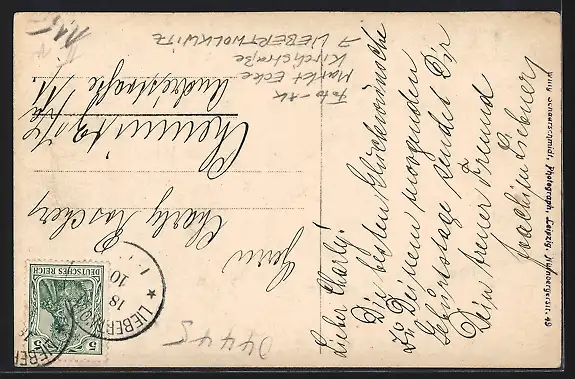 Lieber Charly!
Die besten Glückwünsche
zu Deinem morgenden
Geburtstage sendet Dir
Dein treuer Freund
Joachim Liebner
Herrn
Charly
Chemnitz
Andréstraße
Foto-AK
Markt Ecke
Kirchstraße
→ LIEBERTWOLKWITZ
Willy Schauerschmidt, Photograph, Leipzig, Nürnbergerstr. 49
DEUTSCHES REICH
5 5
LIEBERTW
18
10
D4445